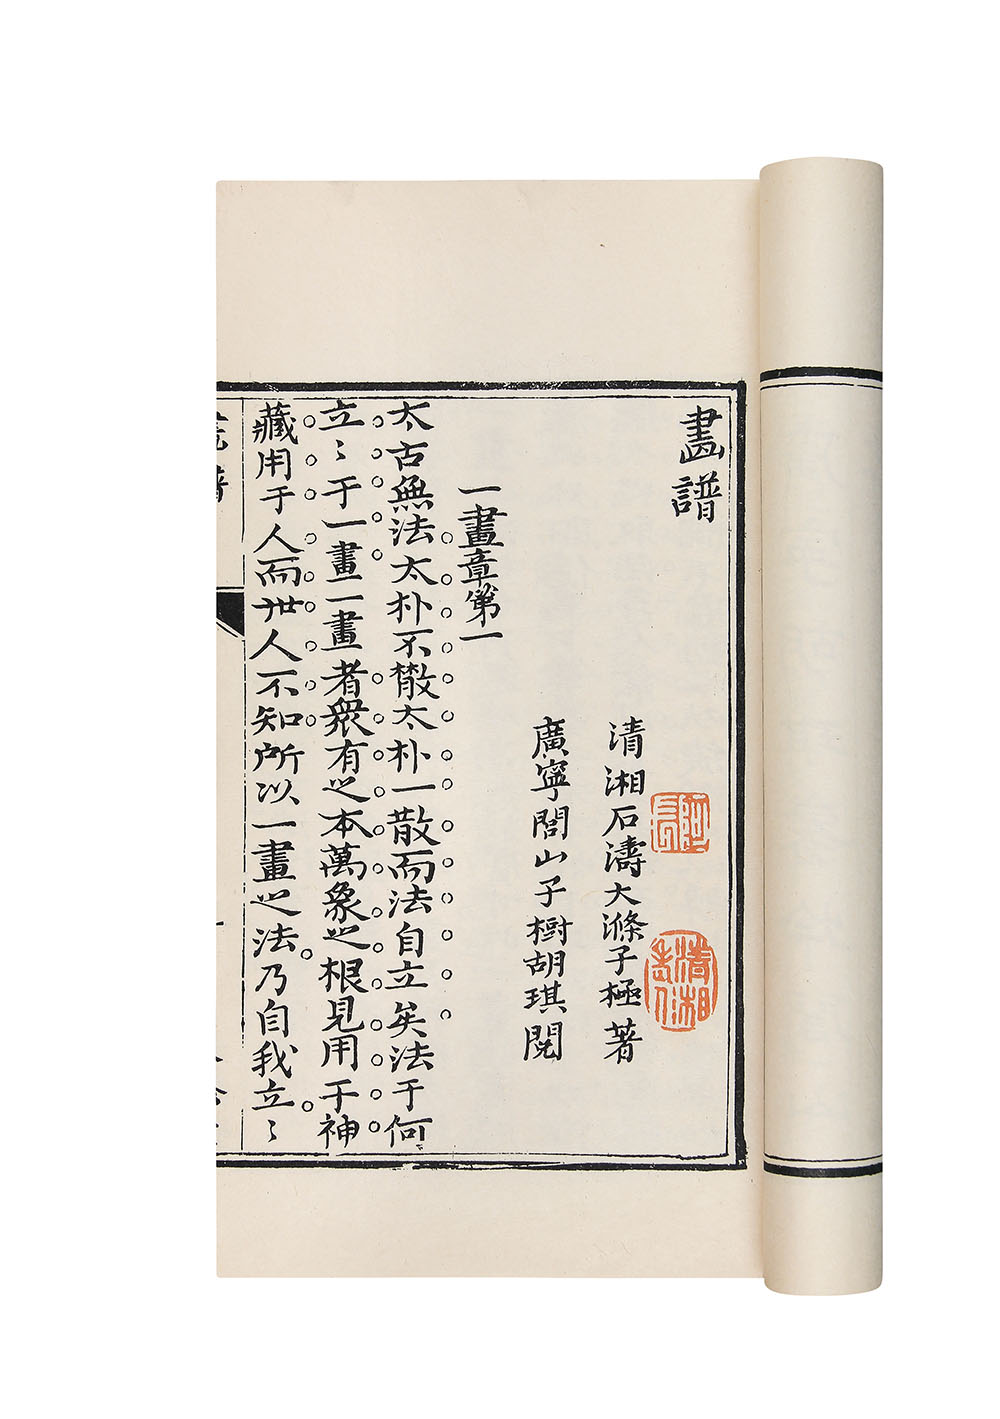 畫譜
清湘石濤大滌子極著
廣寧閻山子樹胡琪閱
一畫章第一
太古無法太朴不散太朴一散而法自立矣法于何
立〻于一畫一畫者衆有之本萬象之根見用于神
藏用于人而世人不知所以一畫之法乃自我立〻
阿長
清湘老人